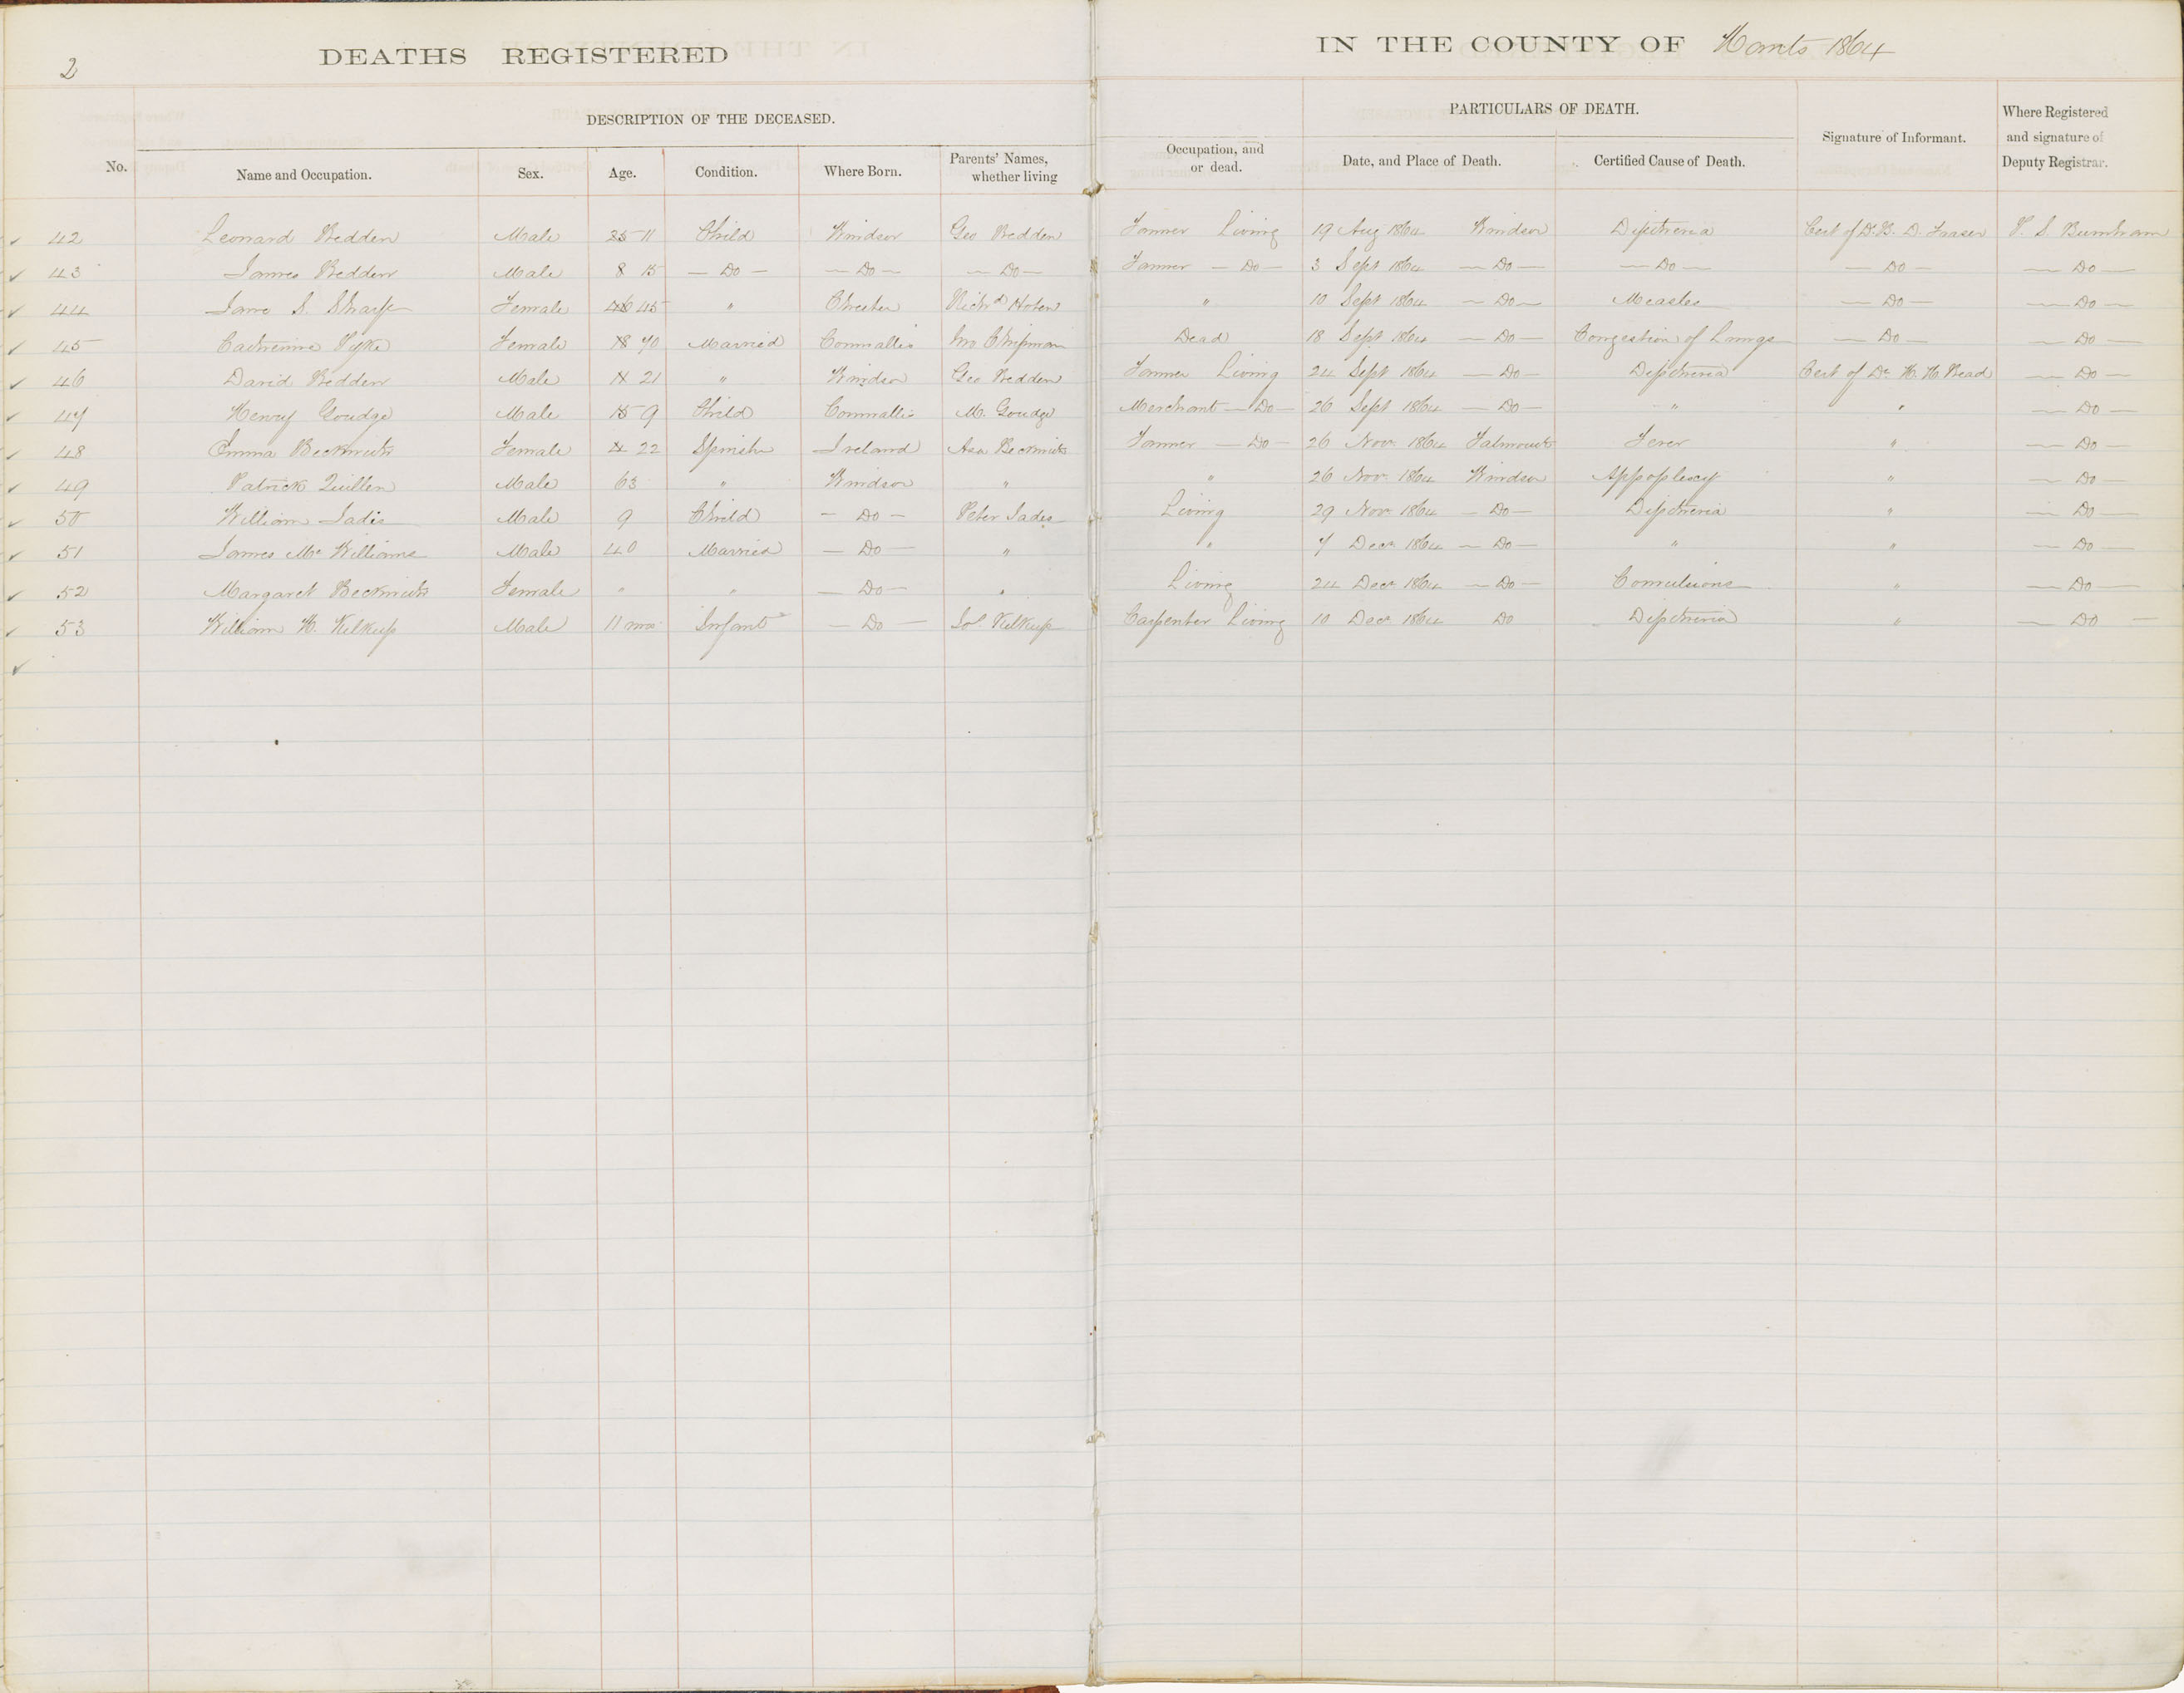 2
DEATHS REGISTERED
IN THE COUNTY OF Hants 1864
DESCRIPTION OF THE DECEASED.
PARTICULARS OF DEATH.
No. Name and Occupation. Sex. Age. Condition. Where Born. Parents' Names, whether living
Occupation, and or dead. Date, and Place of Death. Certified Cause of Death. Signature of Informant. Where Registered and signature of Deputy Registrar.
42 Leonard Redden Male 25 11 Child Windsor Geo Redden Farmer Living 19 Aug 1864 Windsor Diptheria Cert of D. B. D. Fraser P. S. Burnham
43 James Redden Male 8 15 — Do — — Do — — Do — Farmer — Do — 3 Sept 1864 — Do — — Do — — Do — — Do —
44 Jane S. Sharp Female 45 " Chester Richd Farmer " 10 Sept 1864 — Do — Measles — Do — — Do —
45 Catherine Pyke Female 18 70 Married Cornwallis Chipman Dead 18 Sept 1864 — Do — Congestion of Lungs — Do — — Do —
46 David Redden Male 21 " Windsor Geo Redden Farmer Living 24 Sept 1864 — Do — Diptheria Cert of Dr H. H. Read — Do —
47 Henry Goudge Male 15 9 Child Cornwallis M. Goudge Merchant — Do — 26 Sept 1864 — Do — " " — Do —
48 Emma Beckwith Female 22 Spinster Ireland Asa Beckwith Farmer — Do — 26 Nov. 1864 Falmouth Fever " — Do —
49 Patrick Quillen Male 63 " Windsor " " 26 Nov. 1864 Windsor Appoplexy " — Do —
50 William Jadis Male 9 Child — Do — Peter Jadis Living 29 Nov 1864 — Do — Diptheria " — Do —
51 James McWilliams Male 40 Married — Do — " " 7 Decr 1864 — Do — " " — Do —
52 Margaret Beckwith Female " " — Do — " Living 24 Decr 1864 — Do — Convulsions " — Do —
53 William H. Kilkup Male 11 mos Infant — Do — Sol Kilkup Carpenter Living 10 Decr 1864 Do Diptheria " — Do —